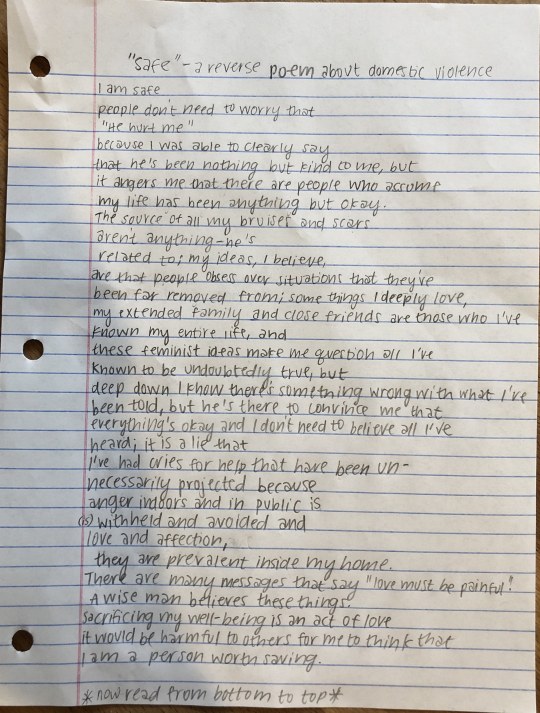 "Safe" - a reverse poem about domestic violence
I am safe
people don't need to worry that
"He hurt me"
because I was able to clearly say
that he's been nothing but kind to me, but
it angers me that there are people who assume
my life has been anything but okay.
The source of all my bruises and scars
aren't anything-he's
related to; my ideas, I believe,
are that people obsess over situations that they've
been far removed from; some things I deeply love,
my extended family and close friends are those who I've
known my entire life, and
these feminist ideas make me question all I've
known to be undoubtedly true, but
deep down I know there's something wrong with what I've
been told, but he's there to convince me that
everything's okay and I don't need to believe all I've
heard; it is a lie that
I've had cries for help that have been un-
necessarily projected because
anger indoors and in public is
(is) withheld and avoided and
love and affection,
they are prevalent inside my home.
There are many messages that say "love must be painful".
A wise man believes these things.
sacrificing my well-being is an act of love
it would be harmful to others for me to think that
I am a person worth saving.
*now read from bottom to top*